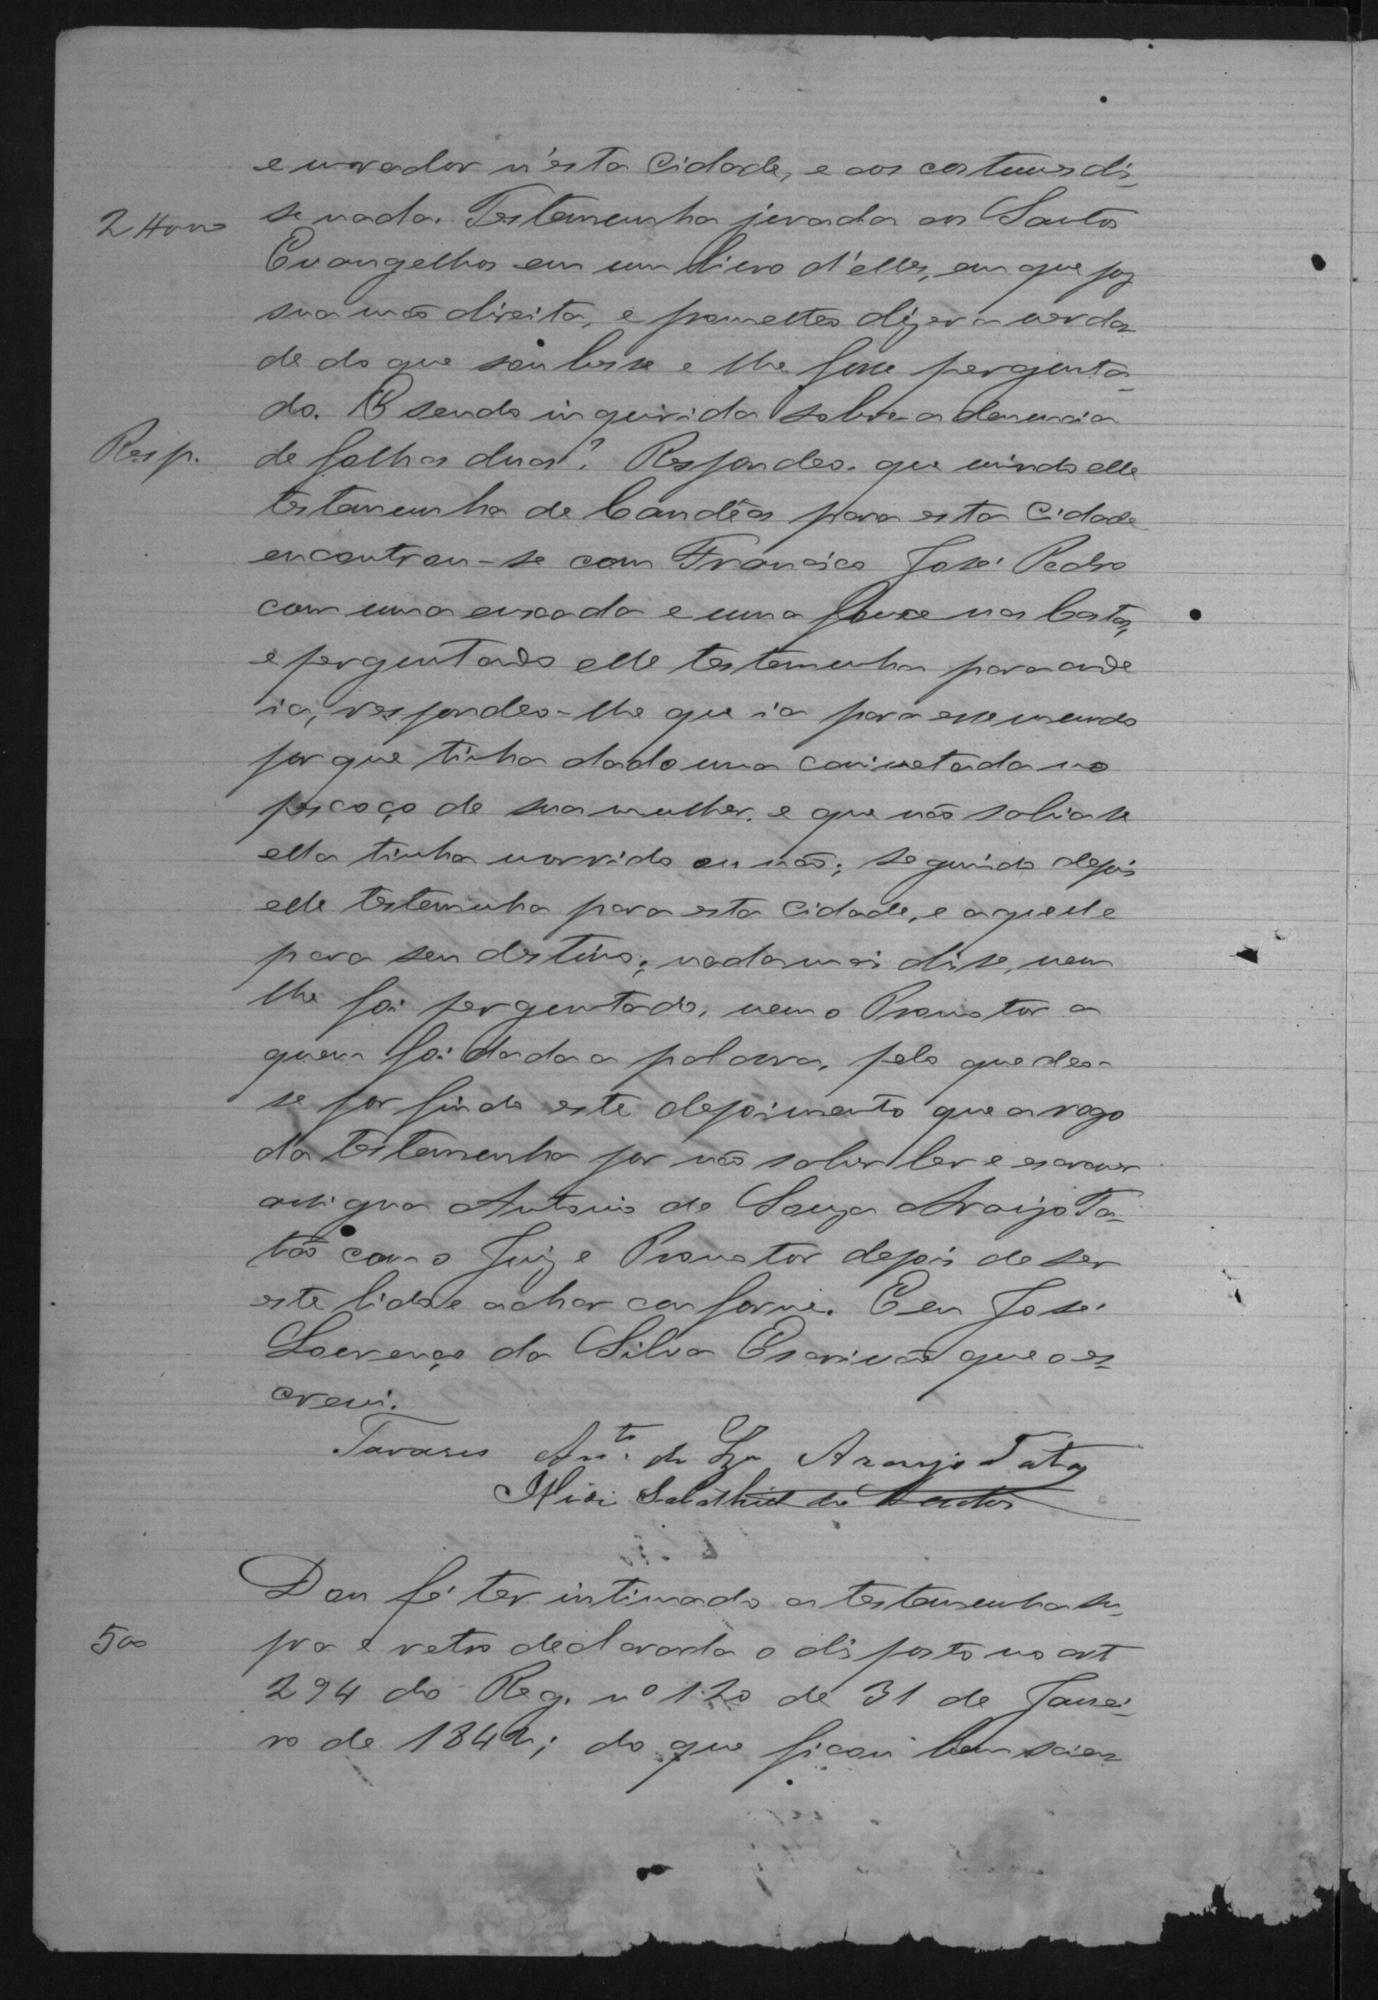 e morador n'esta Cidade, e aos costumes di-
2 Hora se nada. Testemunha jurada aos Santos
Evangelhos em um livro d'elles, em que poz
sua mão direita, e prometteo dizer a verda-
de do que soubesse e lhe fosse pergunta-
do. E sendo inquirida sobre a denuncia
Resp. de folhas duas? Respondeo. que vindo elle
testemunha de Candêas para esta Cidade
encontrou-se com Francisco José Pedro
com uma enxada e uma fouce nas Costas,
e perguntado elle testemunha para onde
ia, respondeo-lhe que ia para esse mundo
por que tinha dado uma canivetada no
pescoço de sua mulher, e que não sabia se
ella tinha morrido ou não; seguindo depois
elle testemunha para esta Cidade, e aquelle
para seu destino; nada mais disse, nem
lhe foi perguntado, nem o Promotor a
quem foi dada a palavra, pelo que deo-
se por findo este depoimento que a rogo
da testemunha por não saber ler e escrever
assigna Antonio de Souza Araujo Ta-
tão com o Juiz e Promotor depois de ser
este lido e achar conforme. E eu José
Lourenço da Silva Escrivão que o es-
crevi.
Tavares Ant.º de Sza Araujo Tatão
Dou fé ter intimado a testemunha su-
500 pra e retro declarada o disposto no art
294 do Reg. nº 120 de 31 de Janei-
ro de 1842; do que ficou bem scien-